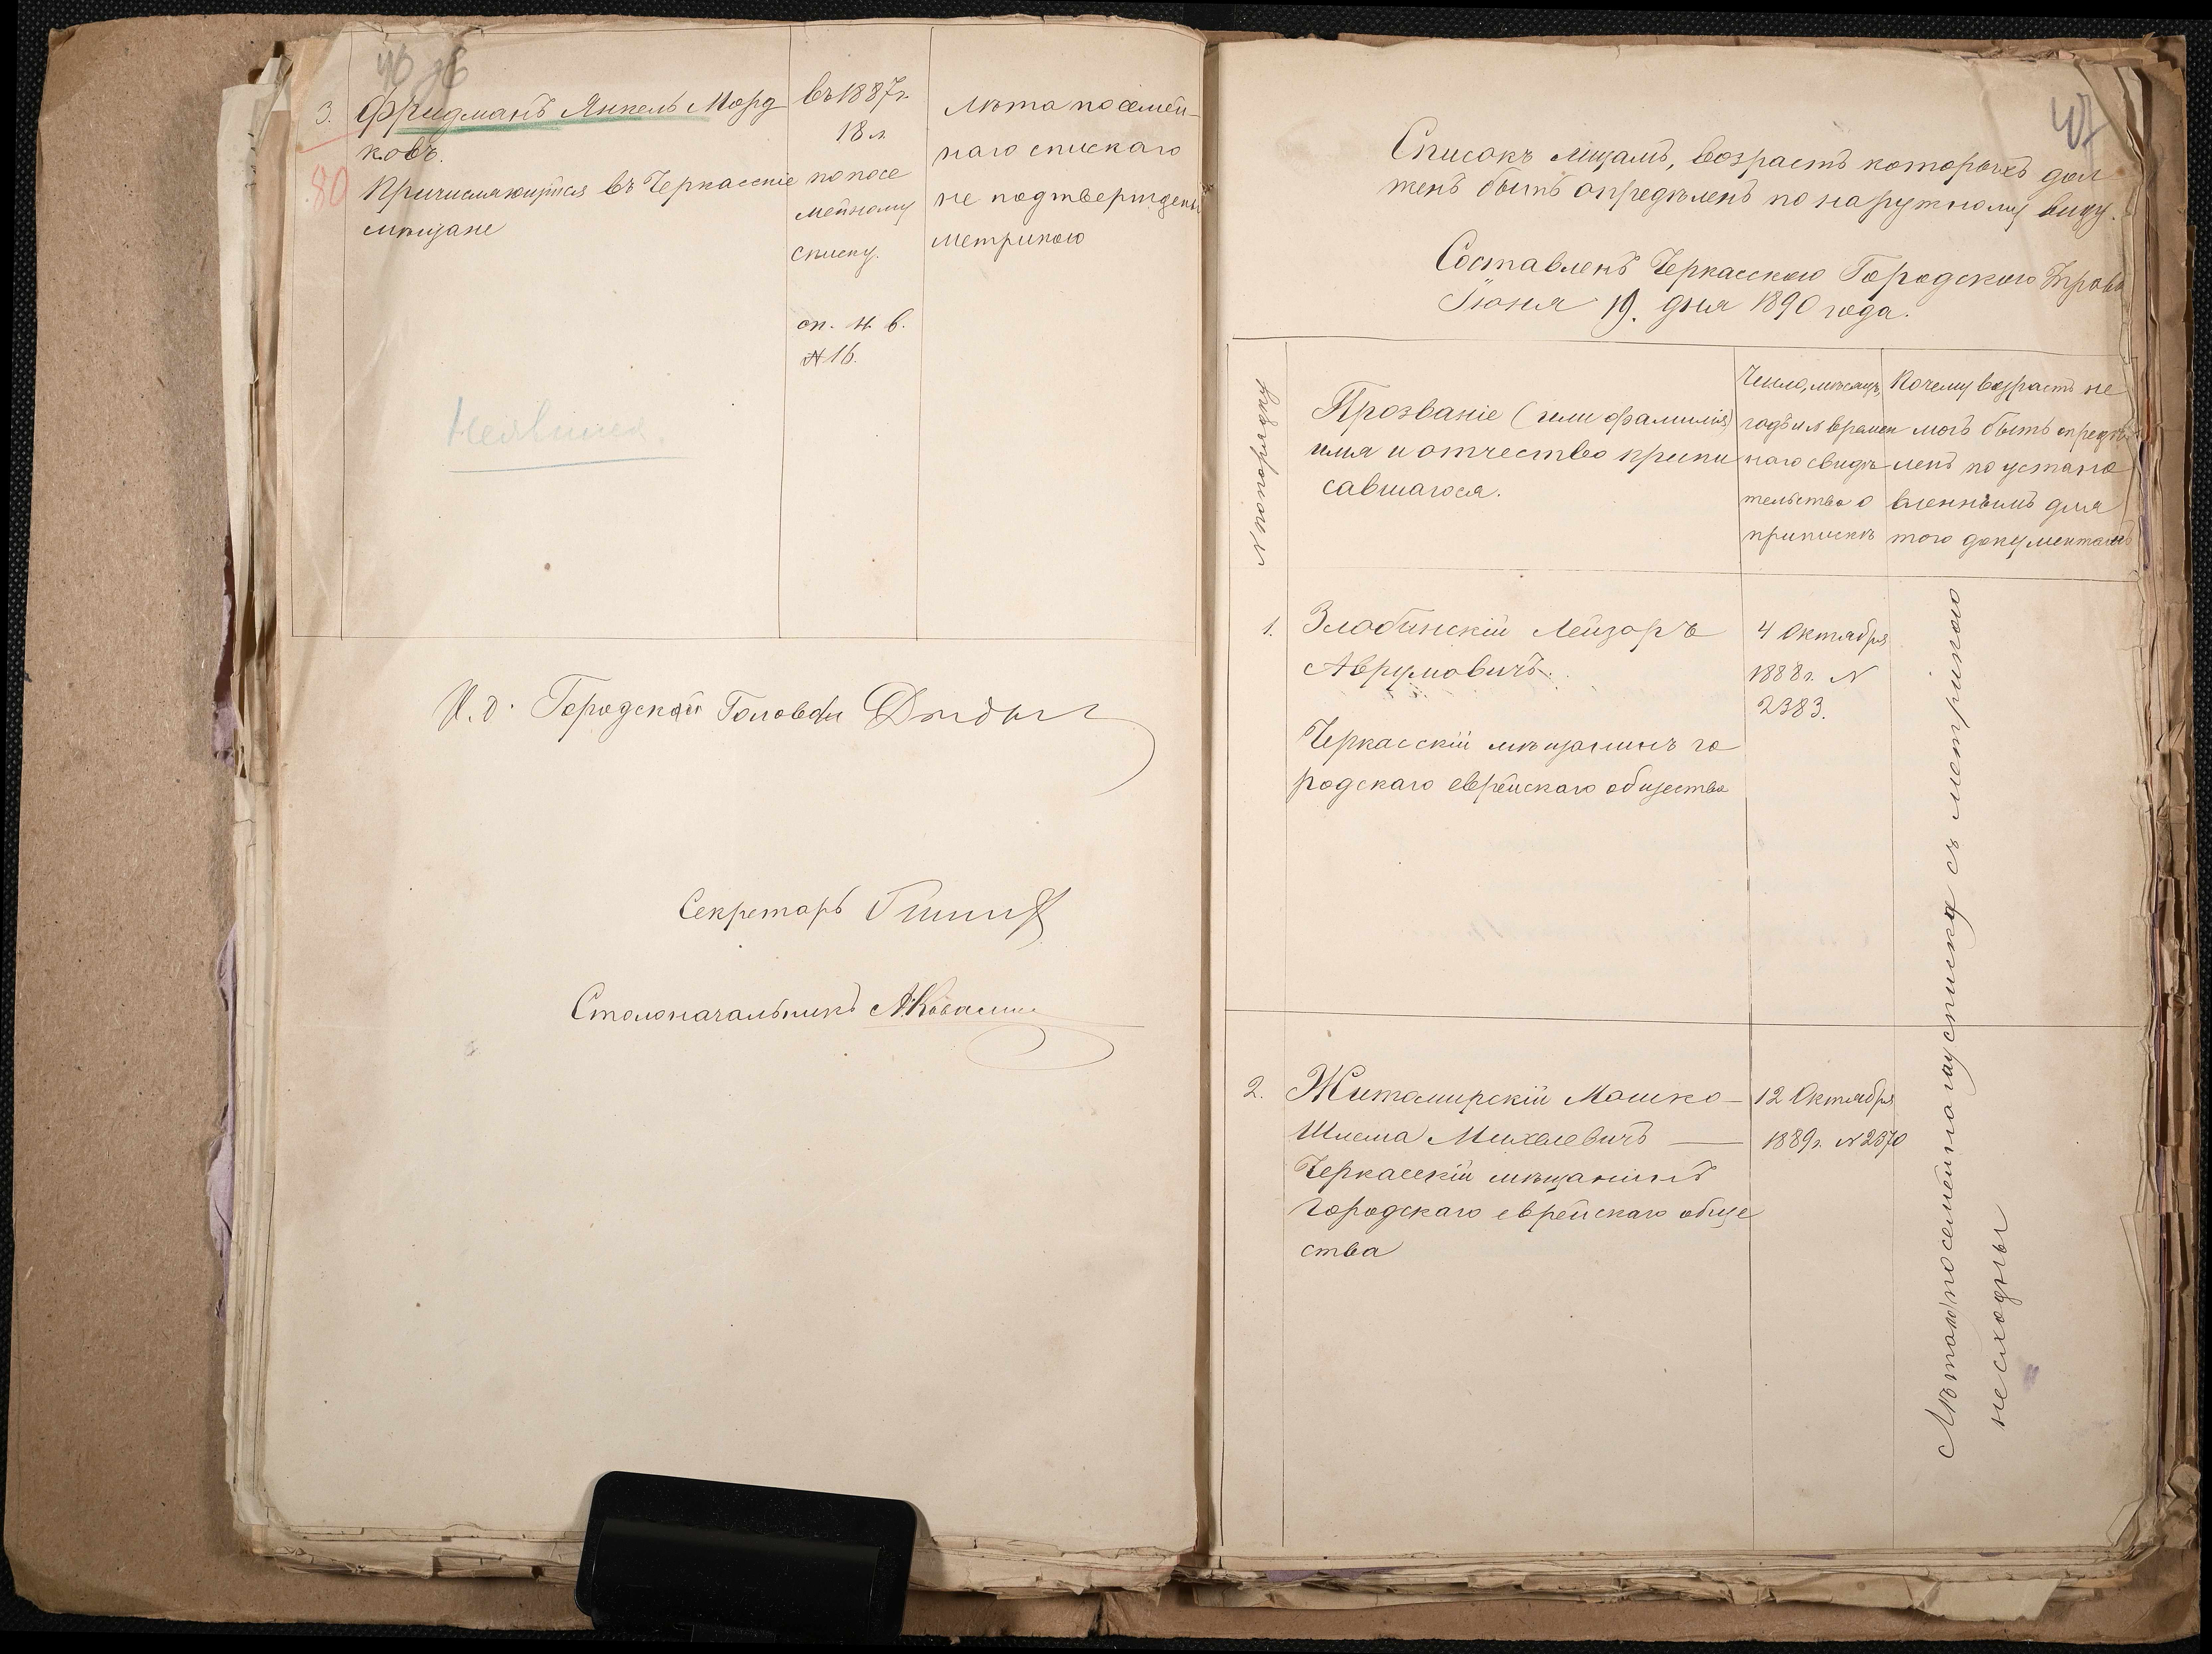 46
3. Фридманъ Янкель Морд
ковъ.
80 Причисляющійся въ Черкасскіе
мѣщане
въ 1887 г.
18 л.
по посе
мейному
списку.
оп. н. в.
№ 16.
Лѣта по семей-
наго списkаго
не подтверждены
метрикою
Неявился
И. д. Городской Головы
Секретарь
Столоначальникъ
47
Списокъ лицамъ, возрастъ которыхъ дол
женъ быть опредѣленъ по наружному виду.
Составленъ Черкасскою Городскою Управ
Іюня 19. дня 1890 года.
№ по порядку
Прозваніе (или фамилія)
имя и отчество припи
савшагося.
Число, мѣсяцъ,
годъ и № времен
наго свидѣ
тельства о
припискѣ
Почему возрастъ не
могъ быть опредѣ
ленъ по устано
вленнымъ для
того документамъ
1. Злобинскій Лейзоръ
Аврумовичъ.
Черкасскій мѣщанинъ го
родскаго еврейскаго общества
4 Октября
1888 г. №
2383.
2. Житомирскій Мошко-
Шлема Михелевичъ —
Черкасскій мѣщанинъ
городскаго еврейскаго обще
ства
12 Октября
1889 г. № 2370
Лѣта по посемейному списку съ метрикою
несходны